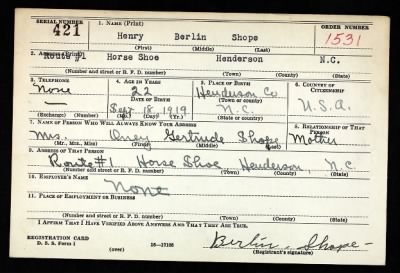 SERIAL NUMBER 1. NAME (Print) ORDER NUMBER
421 Henry Berlin Shope 1531
(First) (Middle) (Last)
2. ADDRESS (Print)
Route #1 Horse Shoe Henderson N.C.
(Number and street or R. F. D. number) (Town) (County) (State)
3. TELEPHONE 4. AGE IN YEARS 5. PLACE OF BIRTH 6. COUNTRY OF CITIZENSHIP
None 22 Henderson Co
DATE OF BIRTH (Town or county)
— 18, 1919 N.C. U.S.A.
(Exchange) (Number) (Mo.) (Day) (Yr.) (State or country)
7. NAME OF PERSON WHO WILL ALWAYS KNOW YOUR ADDRESS 8. RELATIONSHIP OF THAT PERSON
Mrs. Gertrude Shope Mother
(Mr., Mrs., Miss) (First) (Middle) (Last)
9. ADDRESS OF THAT PERSON
Route #1 Horse Shoe Henderson, N.C.
(Number and street or R. F. D. number) (Town) (County) (State)
10. EMPLOYER'S NAME
None
11. PLACE OF EMPLOYMENT OR BUSINESS
(Number and street or R. F. D. number) (Town) (County) (State)
I AFFIRM THAT I HAVE VERIFIED ABOVE ANSWERS AND THAT THEY ARE TRUE.
REGISTRATION CARD
D. S. S. Form 1 (over) 16—17105 Berlin Shope
(Registrant's signature)